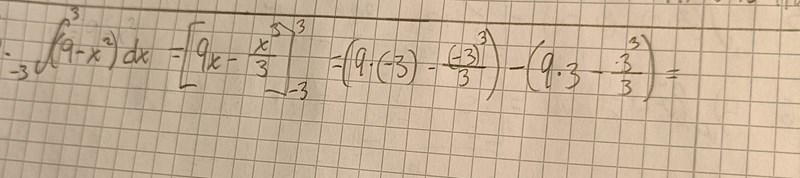 ∫_{-3}^{3} (9-x²) dx = [9x - x³/3]_{-3}^{3} = (9·(-3) - (-3)³/3) - (9·3 - 3³/3) =